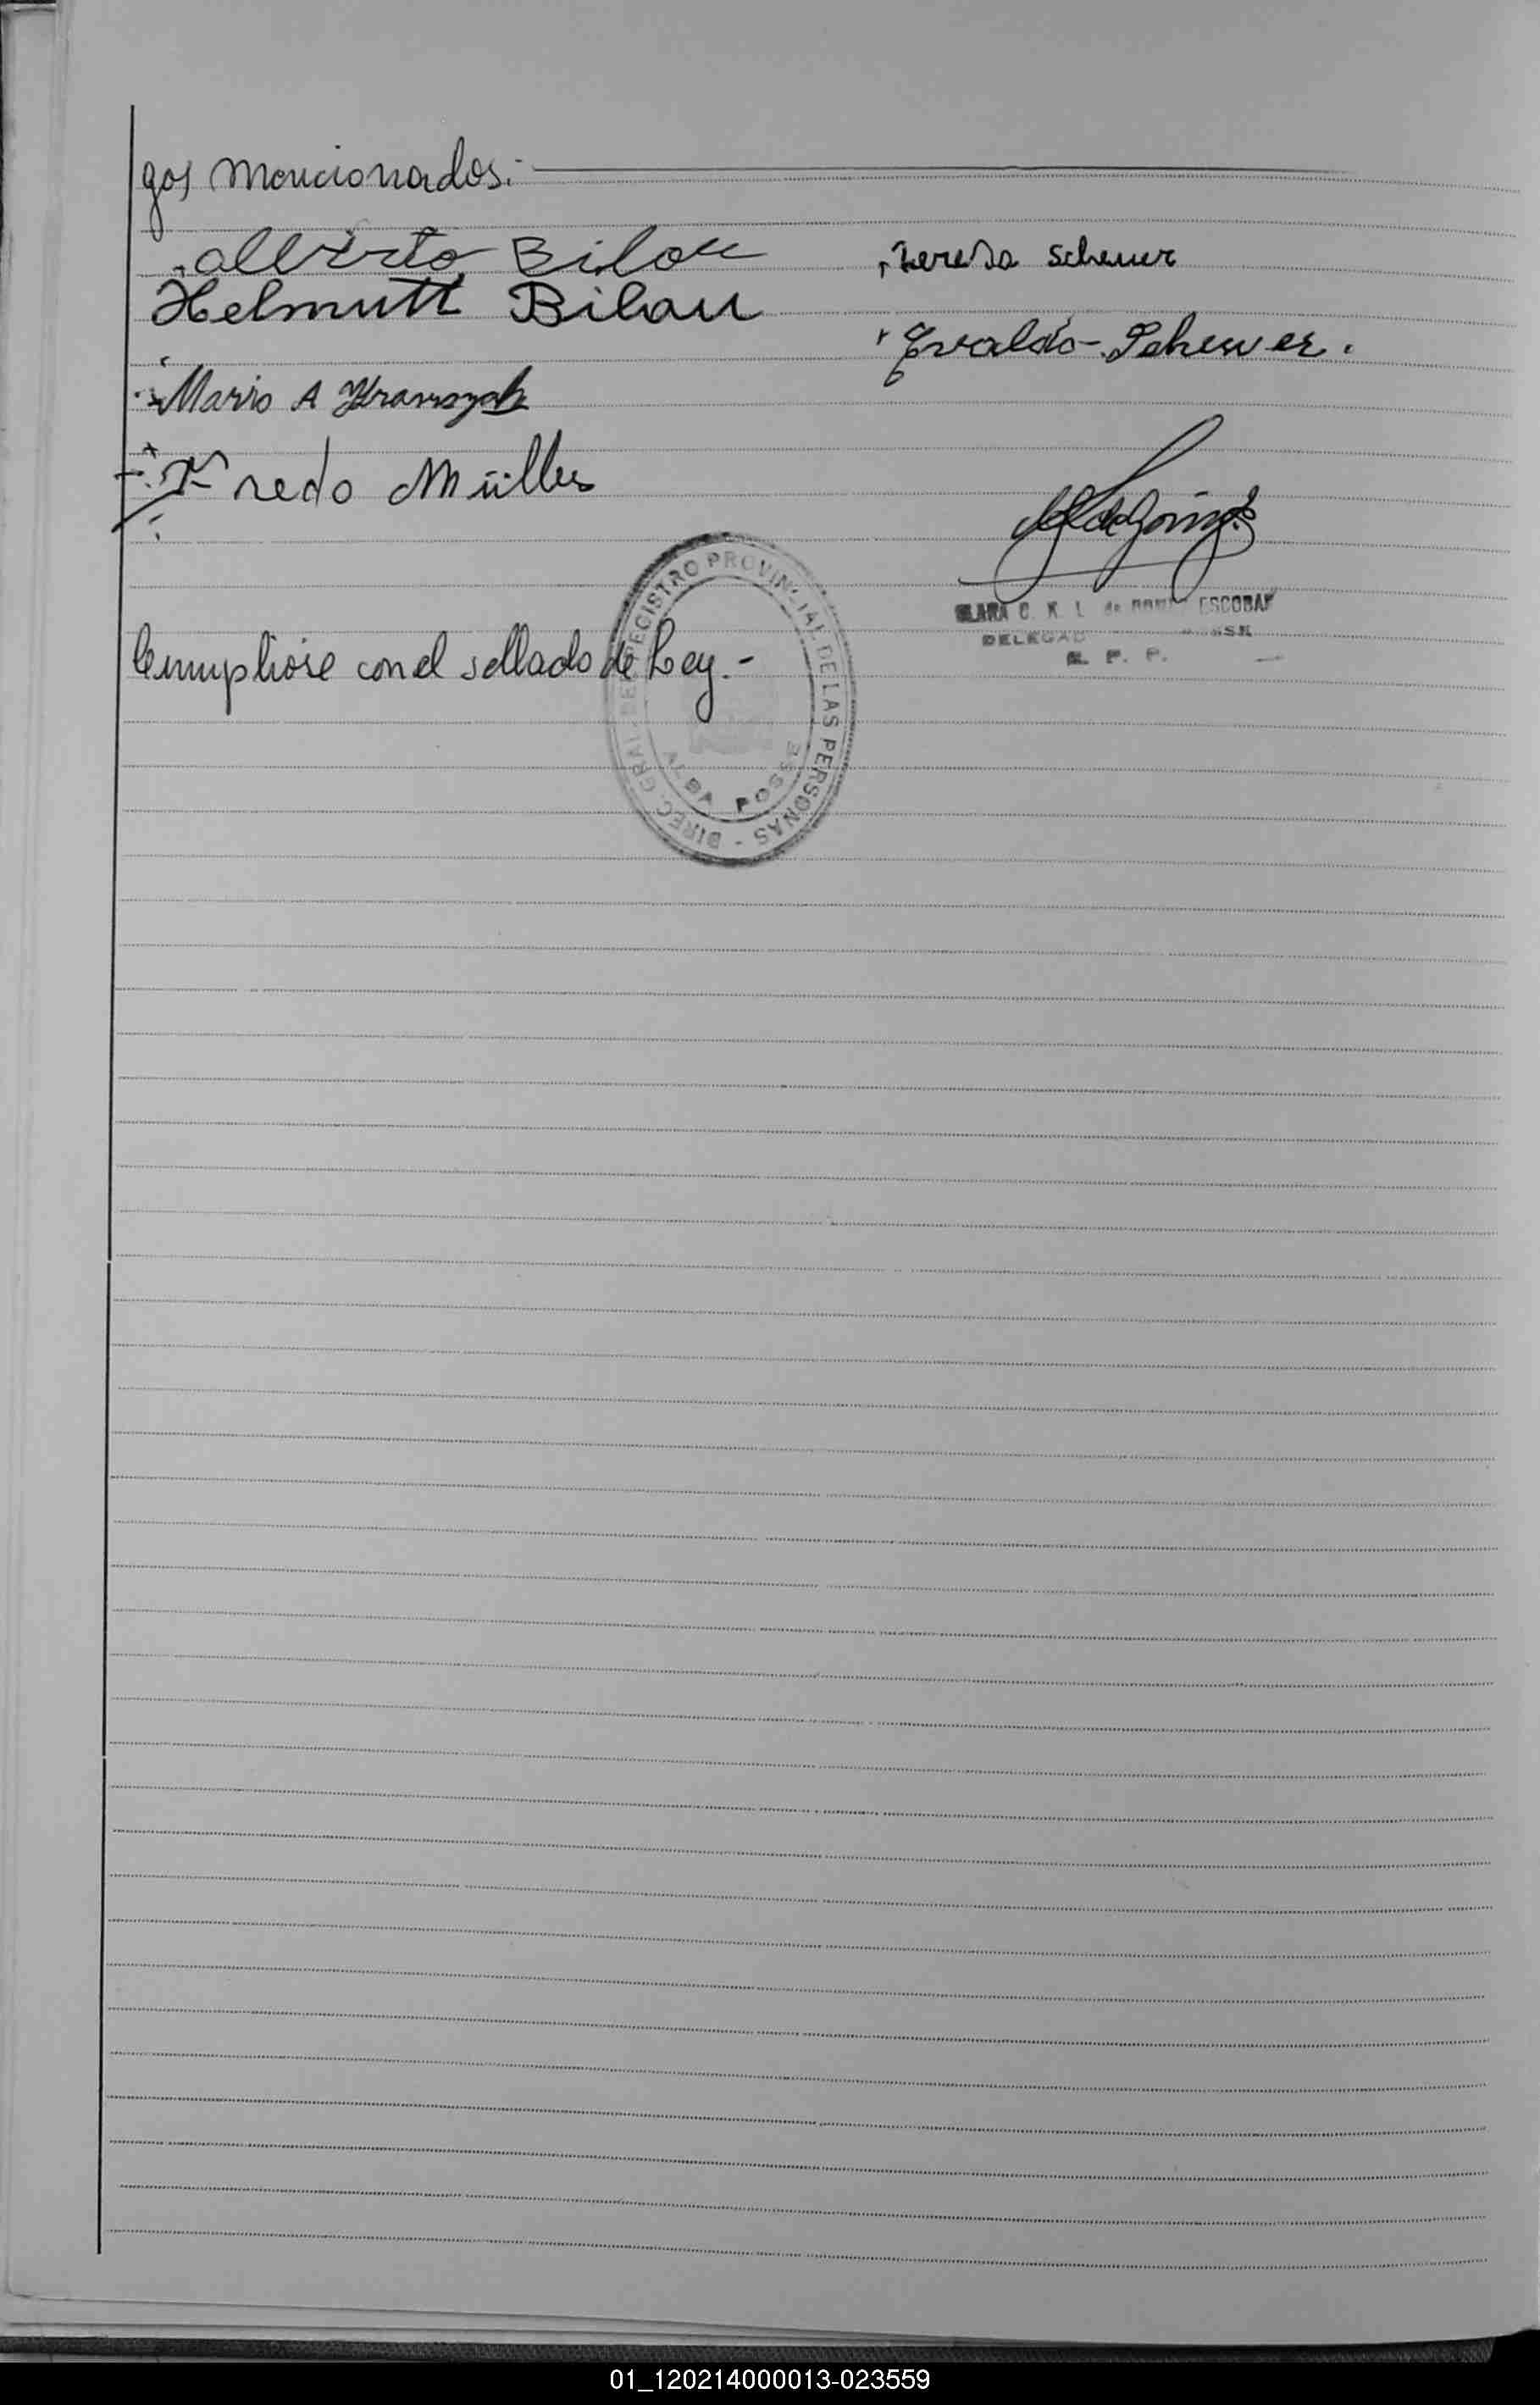 gos mencionados.-
Alberto Bilau
Teresa Scheuer
Helmutt Bilau
Evaldo - Scheuer.
Mario A
Fredo Müller
CLARA C. K. L. de ESCOBAR
R. P. P.
Cumpliose con el sellado de Ley.-
DIREC. GRAL. DEL REGISTRO PROVINCIAL DE LAS PERSONAS -
ALBA POSSE
01_120214000013-023559